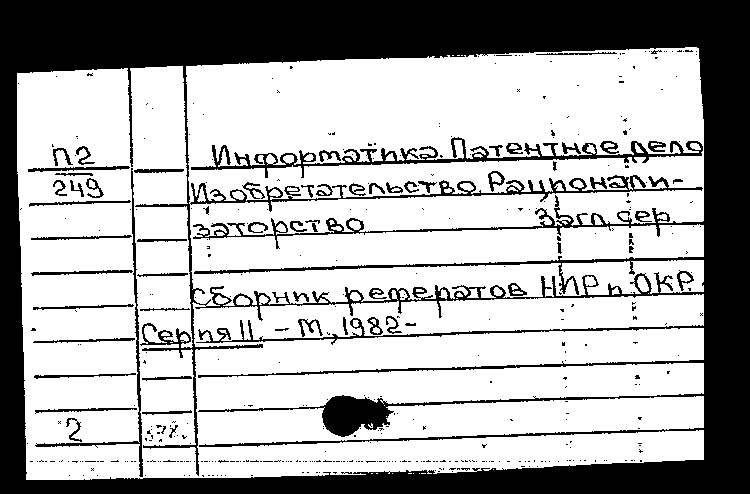 П2
249
Информатика. Патентное дело
Изобретательство. Рационали-
заторство Загл. сер.
Сборник рефератов НИР и ОКР.
Серия II. - М., 1982-
2